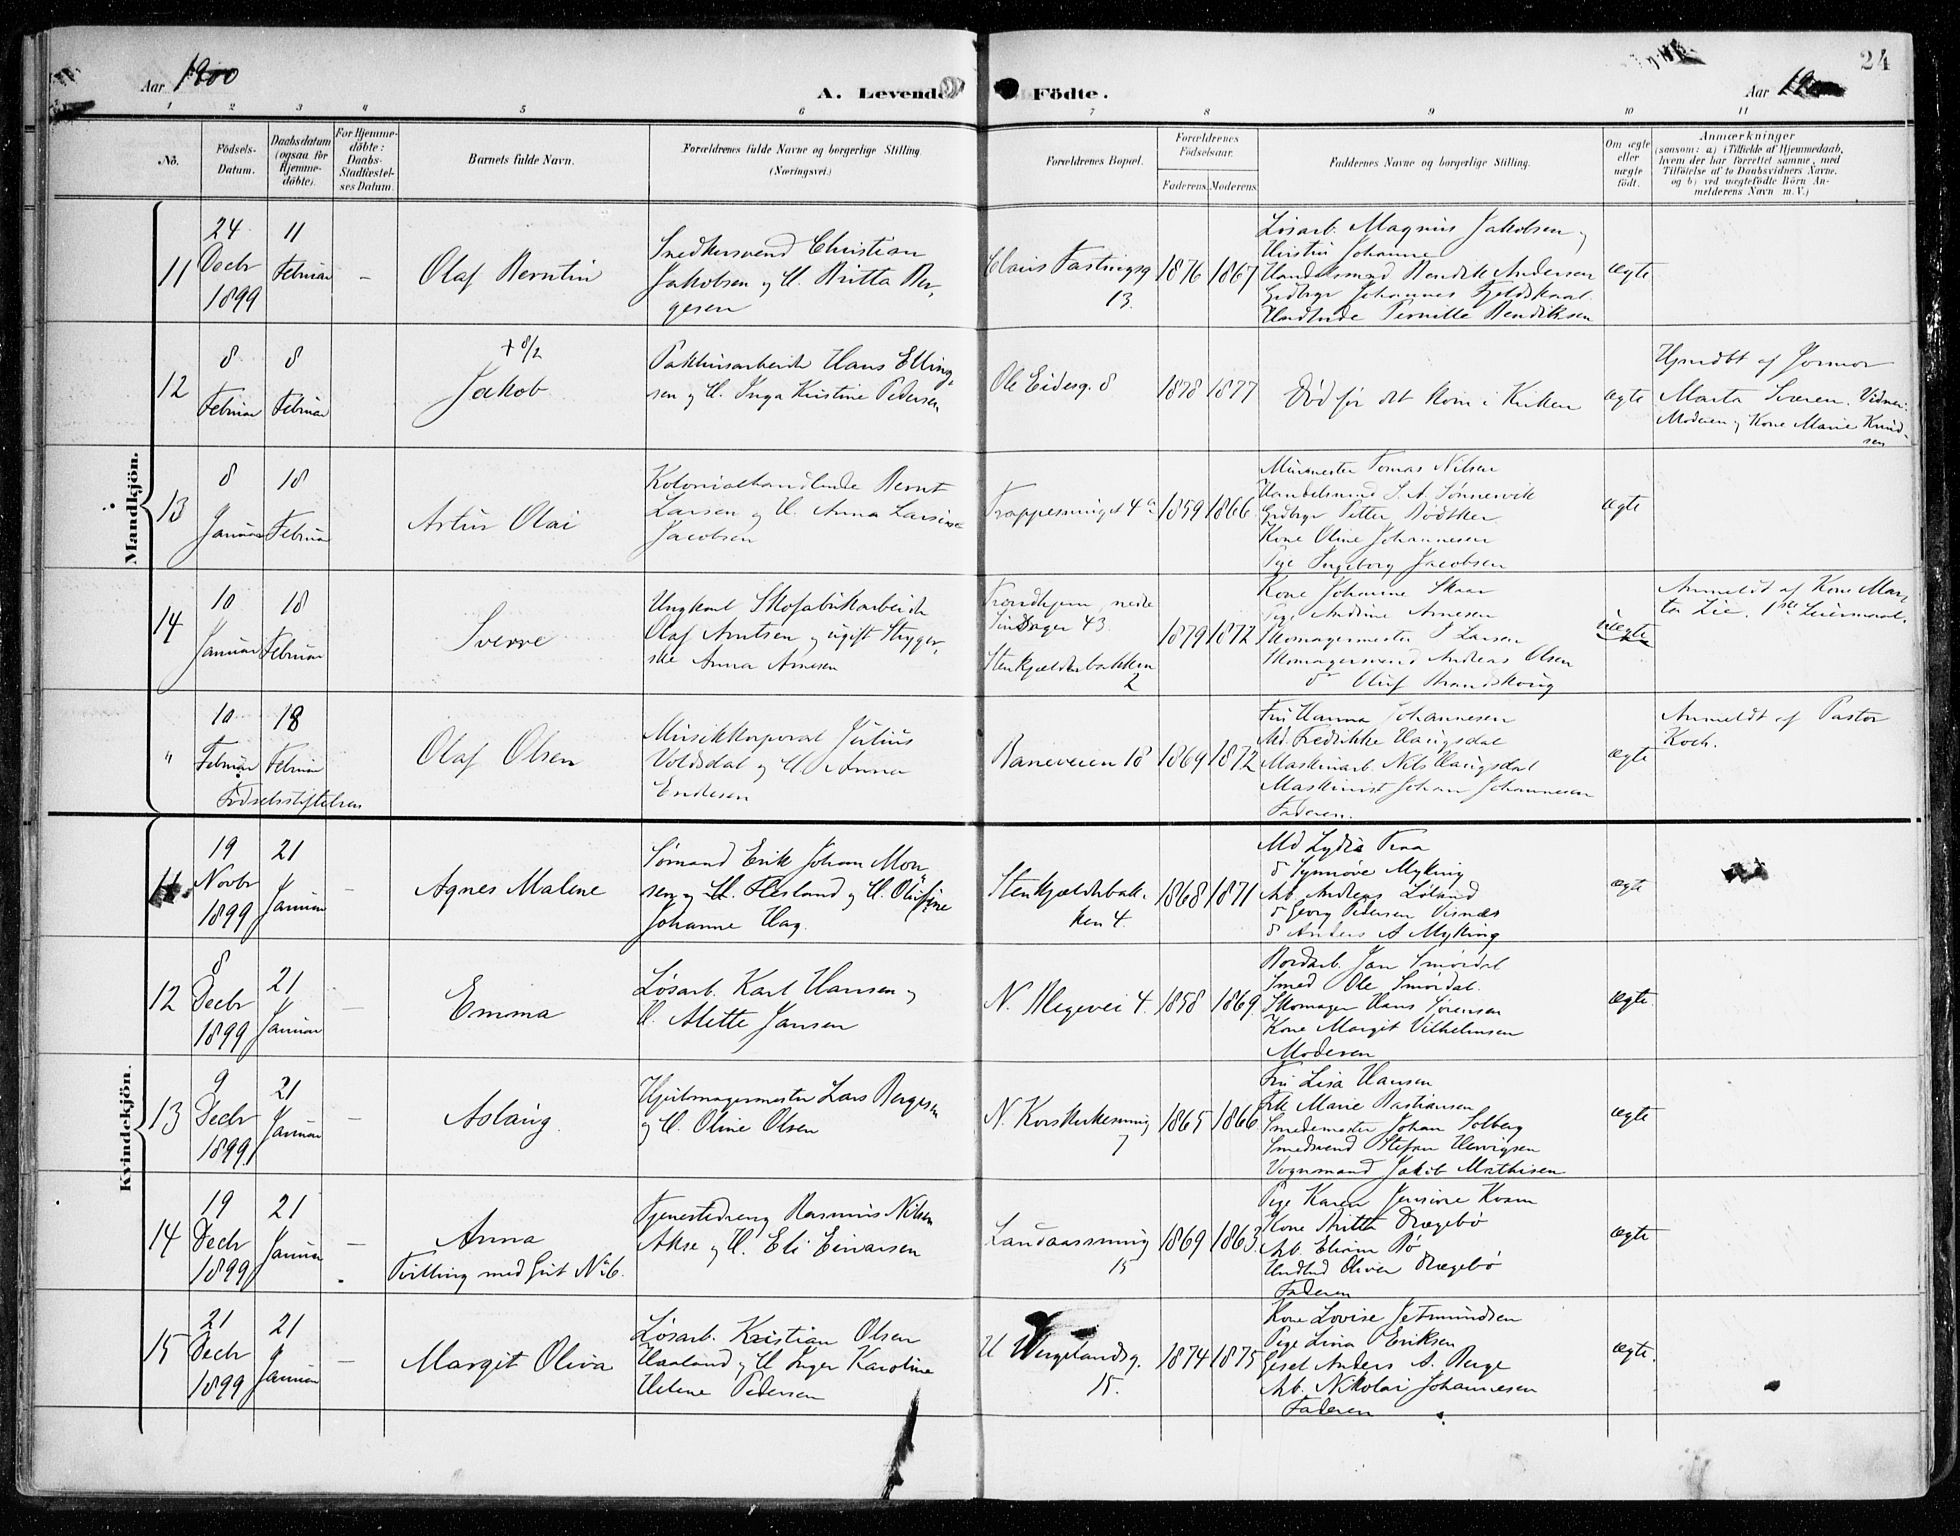 24
Aar 1900
A. Levende Födte.
Aar 19
1 2 3 4 5 6 7 8 9 10 11
No.
Födsels-Datum.
Daabsdatum (ogsaa for Hjemmedöbte).
For Hjemmedöbte: Daabs-Stadfæstelses Datum.
Barnets fulde Navn.
Forældrenes fulde Navne og borgerlige Stilling. (Næringsvei.)
Forældrenes Bopæl.
Forældrenes Födselsaar.
Faderens. Moderens.
Faddernes Navne og borgerlige Stilling.
Om ægte eller uægte födt.
Anmærkninger
(saasom: a) i Tilfælde af Hjemmedaab, hvem der har forrettet samme, med Tilföielse af to Daabsvidners Navne. og b) ved uægtefödte Börn Anmelderens Navn m. V.)
Mandkjön.
11
24 Decbr 1899
11 Februar
-
Olaf Berntin
Snedkersvend Christian
Jakobsen og H. Britta Ber,
gesen
Claus Fastingsg
13.
1876 1867
Løsarb. Magnus Jakobsen og
Hustru Johanne
Handelsmand Bendik Andersen
Grdbgr Johannes Fjeldskaal
Handlende Pernille Bendiksen
ægte
12
8 Februar
8 Februar
+ 8/2
Jakob
Pakhusarbeide Hans Elling,
sen og H. Inga Kristine Pedersen
Ole Eidesg. 8
1878 1877
Død før det kom i Kirken
ægte
Hjemdøbt af Jormor
Marta Sværen. Vidner:
Moderen og Kone Marie Knud-
sen
13
8 Januar
18 Februar
Artur Olai
Kolonialhandlende Bernt
Larsen og H. Anna Larsine
Jacobsen
Trappesmuget 4a
1859 1866
Murmester Tomas Nilsen
Handelsmand S. A. Sønnervik
Grdbgr Petter Bødtker
Kone Oline Johannesen
Pige Ingeborg Jacobsen
ægte
14
10 Januar
18 Februar
Sverre
Ungkarl Skofabrikarbeide
Olaf Arntsen og ugift Stryger,
ske Anna Arnesen
Trondhjem, nedre
43.
Stenkjælderbakken
2
1879 1872
Kone Johanne Skaar
Pige Andine Arnesen
Skomagermester S Larsen
Skomagersvend Andreas Olsen
do Oluf
uægte
Anmeldt af Kone Mar,
ta Lie. 1ste Leiermaal.
"
10 Februar
18 Februar
Fødselsstiftelsen
Olaf Olsen
Musikkorporal Julius
Voldsdal og H. Anna
Endesen
Baneveien 18
1869 1872
Fru Hanna Johannesen
Md. Fredrikke Haugsdal
Maskinarb. Nils Haugsdal
Maskinist Johan Johannesen
Faderen.
ægte
Anmeldt af Pastor
Koch.
Kvindekjön.
11
19 Novbr 1899
21 Januar
-
Agnes Malene
Sømand Erik Johan Mon,
sen Flesland og H. Olufine
Johanne Hag.
Stenkjælderbak,
ken 4.
1868 1871
Md Lydia
do Synnøve Myking
Arb. Andreas Løland
do Georg Pedersen Visnæs
do Anders A Myking
ægte
12
8 Decbr 1899
21 Januar
-
Emma
Løsarb. Karl Hansen og
H. Alette Jansen
N. Blegevei 4.
1858 1869
Bordarb. Jan Smørdal
Smed Ole Smørdal.
Skomager Hans Sørensen
Kone Margit Vilhelmsen
Moderen
ægte.
13
9 Decbr 1899
21 Januar
-
Aslaug
Hjulmagermester Lars Bergesen
og H. Oline Olsen
N. Korskirkesmug
7
1865 1866
Fru Lisa Hansen
Frk Marie Bastiansen
Smedemester Johan Solberg
Smedsvend Stefan
Vognmand Jakob Mathisen
ægte
14
19 Decbr 1899
21 Januar
-
Anna
Tvilling med Gut No 6.
Tjenestedreng Rasmus Nilsen
Akse og H. Eli Einarsen
Landaassmug
15
1869 1863
Pige Karen
Kone Britta Drægebø
Arb. Bø
Handlend Oliver Drægebø
Faderen
ægte
15
21 Decbr 1899
21 Januar
-
Margit Oliva
Løsarb. Kristian Olsen
Haaland og H Inger Karoline
Helene Pedersen
H Wergelandsg.
15.
1874 1875
Kone Lovise Jetmundsen
Pige Lina Eriksen
Gesel Anders A. Berge
Arb. Nikolai Johannesen
Faderen
ægte.